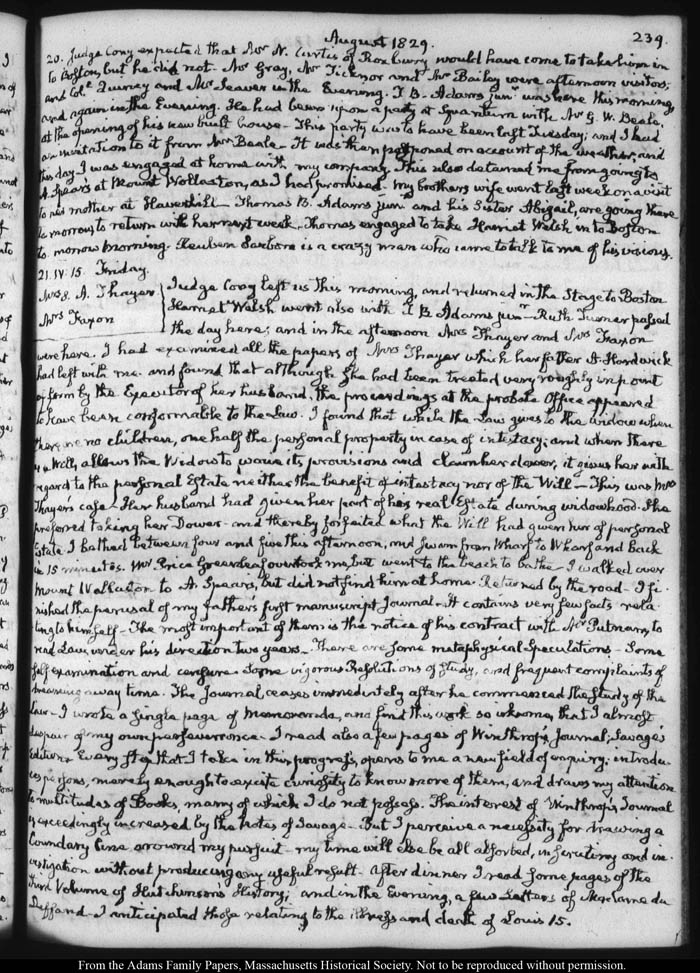 August 1829.
239.
20. Judge Cony expected that Mr N. Curtis of Roxbury would have come to take him in
to Boston, but he did not. Mrs Gray, Mr Ticknor and Mr Bailey were afternoon visitors;
and Col.l Quincy and Mr Seaver in the Evening. T. B. Adams junr was here this morning,
and again in the Evening. He had been upon a party at Squantum with Mr G. W. Beale
at the opening of his new built house — This party was to have been last Tuesday; and I had
an invitation to it from Mrs Beale — It was then postponed on account of the weather, and
this day I was engaged at home with my company. This also detained me from going to
A. Spear's at Mount Wollaston, as I had promised. My brother's wife went last week on a visit
to her mother at Haverhill — Thomas B. Adams junr and his Sister Abigail, are going there
to morrow, to return with her next week. Thomas engaged to take Harriet Welsh in to Boston
to morrow morning. Reuben is a crazy man who came to talk to me of his visions.
21. IV. 15. Friday.
Mrs S. A. Thayer
Mrs Faxon
Judge Cony left us this morning, and returned in the Stage to Boston
Harriet Welsh went also with T B Adams junr — Ruth Turner passed
the day here; and in the afternoon Mrs Thayer and Mrs Faxon
were here. I had examined all the papers of Mrs Thayer which her father A. Hardwick
had left with me. and found that although she had been treated very roughly in point
of form by the Executor of her husband, the proceedings at the probate Office appeared
to have been conformable to the Law. I found that while the Law gives to the widow when
there are no children, one half the personal property in case of intestacy; and when there
is a Will, allows the Widow to waive its provisions and claim her dower, it gives her with
regard to the personal Estate neither the benefit of intestacy nor of the Will — This was Mrs
Thayers case. Her husband had given her part of his real Estate during widowhood. She
preferred taking her Dower — and thereby forfeited what the Will had given her of personal
Estate. I bathed between four and five this afternoon, and swam from Wharf to Wharf and back
in 15 minutes. Mr Price Greenleaf overtook me, but went to the beach to bathe — I walked over
Mount Wollaston to A. Spear's, but did not find him at home. Returned by the road — I fi-
nished the perusal of my fathers first manuscript Journal — It contains very few facts rela-
ting to himself — The most important of them is the notice of his contract with Mr Putnam, to
read Law, under his direction two years — There are some metaphysical Speculations — Some
self examination and censure. Some vigorous Resolutions of Study, and frequent complaints of
dreaming away time. The Journal, ceases immediately after he commenced the study of the
Law — I wrote a single page of Memoranda, and find this work so irksome, that I almost
despair of my own perseverance — I read also a few pages of Winthrop's Journal; Savage's
Edition. Every step that I take in this progress, opens to me a new field of enquiry; introdu-
ces persons, merely enough to excite curiosity to know more of them, and draws my attention
to multitudes of Books, many of which I do not possess. The interest of Winthrop's Journal
is exceedingly increased by the Notes of Savage — But I perceive a necessity for drawing a
boundary line around my pursuit — my time will else be all absorbed, in scrutiny and in-
vestigation without producing any useful result. After dinner I read some pages of the
third Volume of Hutchinson's History; and in the Evening, a few Letters of Madame du
Deffand — I anticipated those relating to the illness and death of Louis 15.
From the Adams Family Papers, Massachusetts Historical Society. Not to be reproduced without permission.